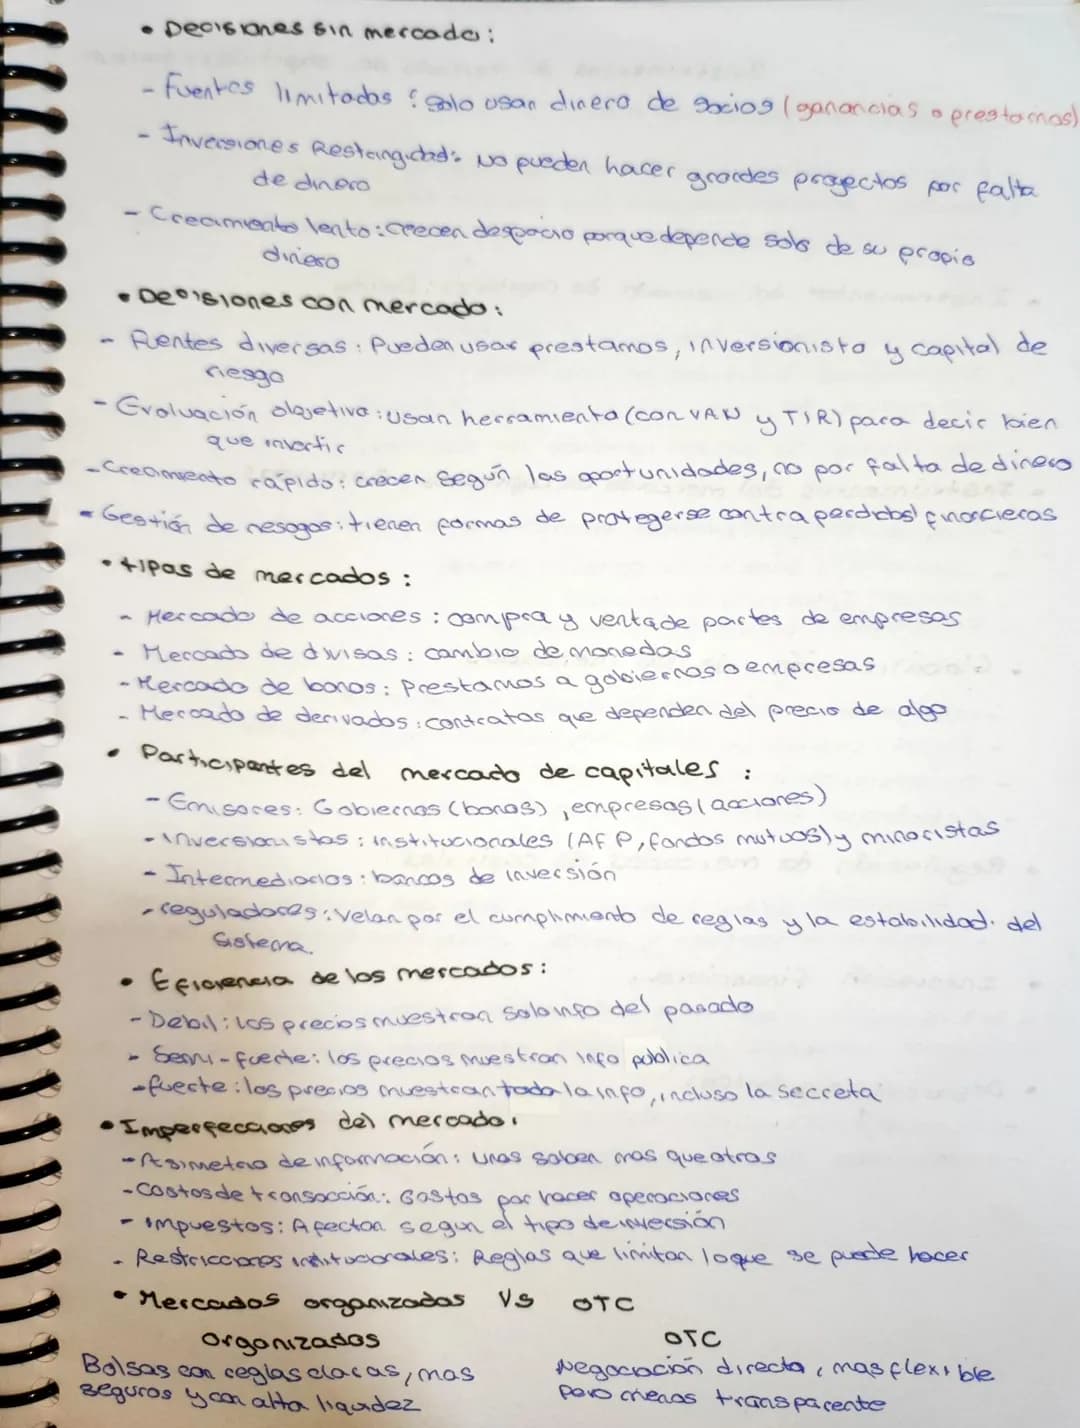 • Decisiones sin mercado:
- Fuentes limitadas: solo usan dinero de socios (ganancias o prestamos)
- Inversiones Restringidas: No pueden hacer grandes proyectos por falta
de dinero
- Crecimiento lento: crecen despacio porque depende solo de su propio
dinero
• Decisiones con mercado:
- Fuentes diversas: Pueden usar prestamos, inversionista y capital de
riesgo
- Evaluación objetiva: usan herramienta (con VAN y TIR) para decir bien
que invertir
- Crecimiento rápido: crecen según las oportunidades, no por falta de dinero
- Gestión de riesgos: tienen formas de protegerse contra perdidas financieras
• tipos de mercados:
- Mercado de acciones: compra y venta de partes de empresas
- Mercado de divisas: cambio de monedas
- Mercado de bonos: Prestamos a gobiernos o empresas
- Mercado de derivados: contratos que dependen del precio de algo
• Participantes del mercado de capitales:
- Emisores: Gobiernos (bonos), empresas (acciones)
- Inversionistas: institucionales (AFP, fondos mutuos) y minoristas
- Intermediarios: bancos de inversión
- reguladores: Velan por el cumplimiento de reglas y la estabilidad. del
sistema.
• Eficiencia de los mercados:
- Debil: los precios muestran solo info del pasado
- Semi-fuerte: los precios muestran info publica
- fuerte: los precios muestran toda la info, incluso la secreta
• Imperfecciones del mercado:
- Asimetria de información: unos saben mas que otros
- Costos de transacción: Gastos por hacer operaciones
- impuestos: Afectan segun el tipo de inversión
- Restricciones institucionales: Reglas que limitan lo que se puede hacer
• Mercados organizados VS OTC
Organizados OTC
Bolsas con reglas claras, mas Negociación directa, mas flexible
seguros y con alta liquidez pero menos transparente